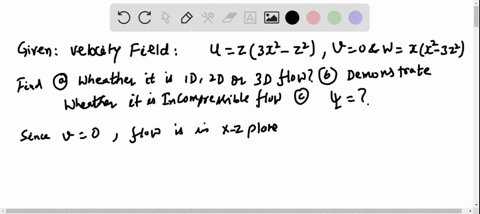 Given: velocity Field: u = z(3x²-z²), v=0 & w= x(x²-3z²)
Find ⓐ Wheather it is 1D, 2D or 3D flow? ⓑ Demonstrate
Wheather it is Incompressible flow ⓒ ψ=?
Since v=0, flow is in x-z plane